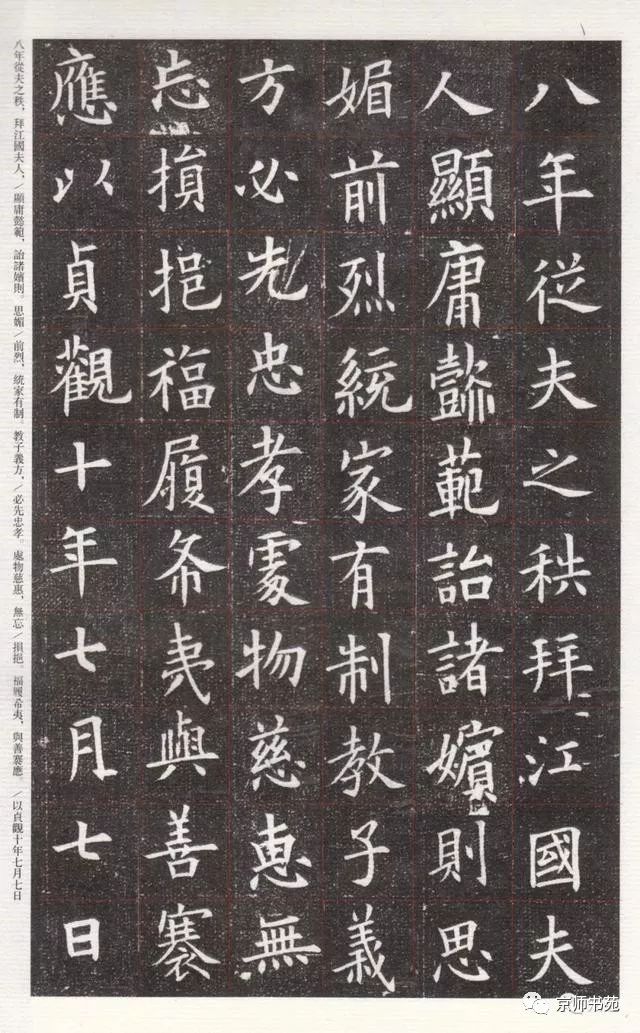 八年從夫之秩拜江國夫
人顯庸懿範詒諸嬪則思
媚前烈統家有制教子義
方必先忠孝處物慈惠無
忘損挹福履希夷與善褰
應以貞觀十年七月七日
八年從夫之秩，拜江國夫人，／顯庸懿範，詒諸嬪則。思媚／前烈，統家有制。教子義方，／必先忠孝。處物慈惠，無忘／損挹。福履希夷，與善褰應。／以貞觀十年七月七日
京师书苑